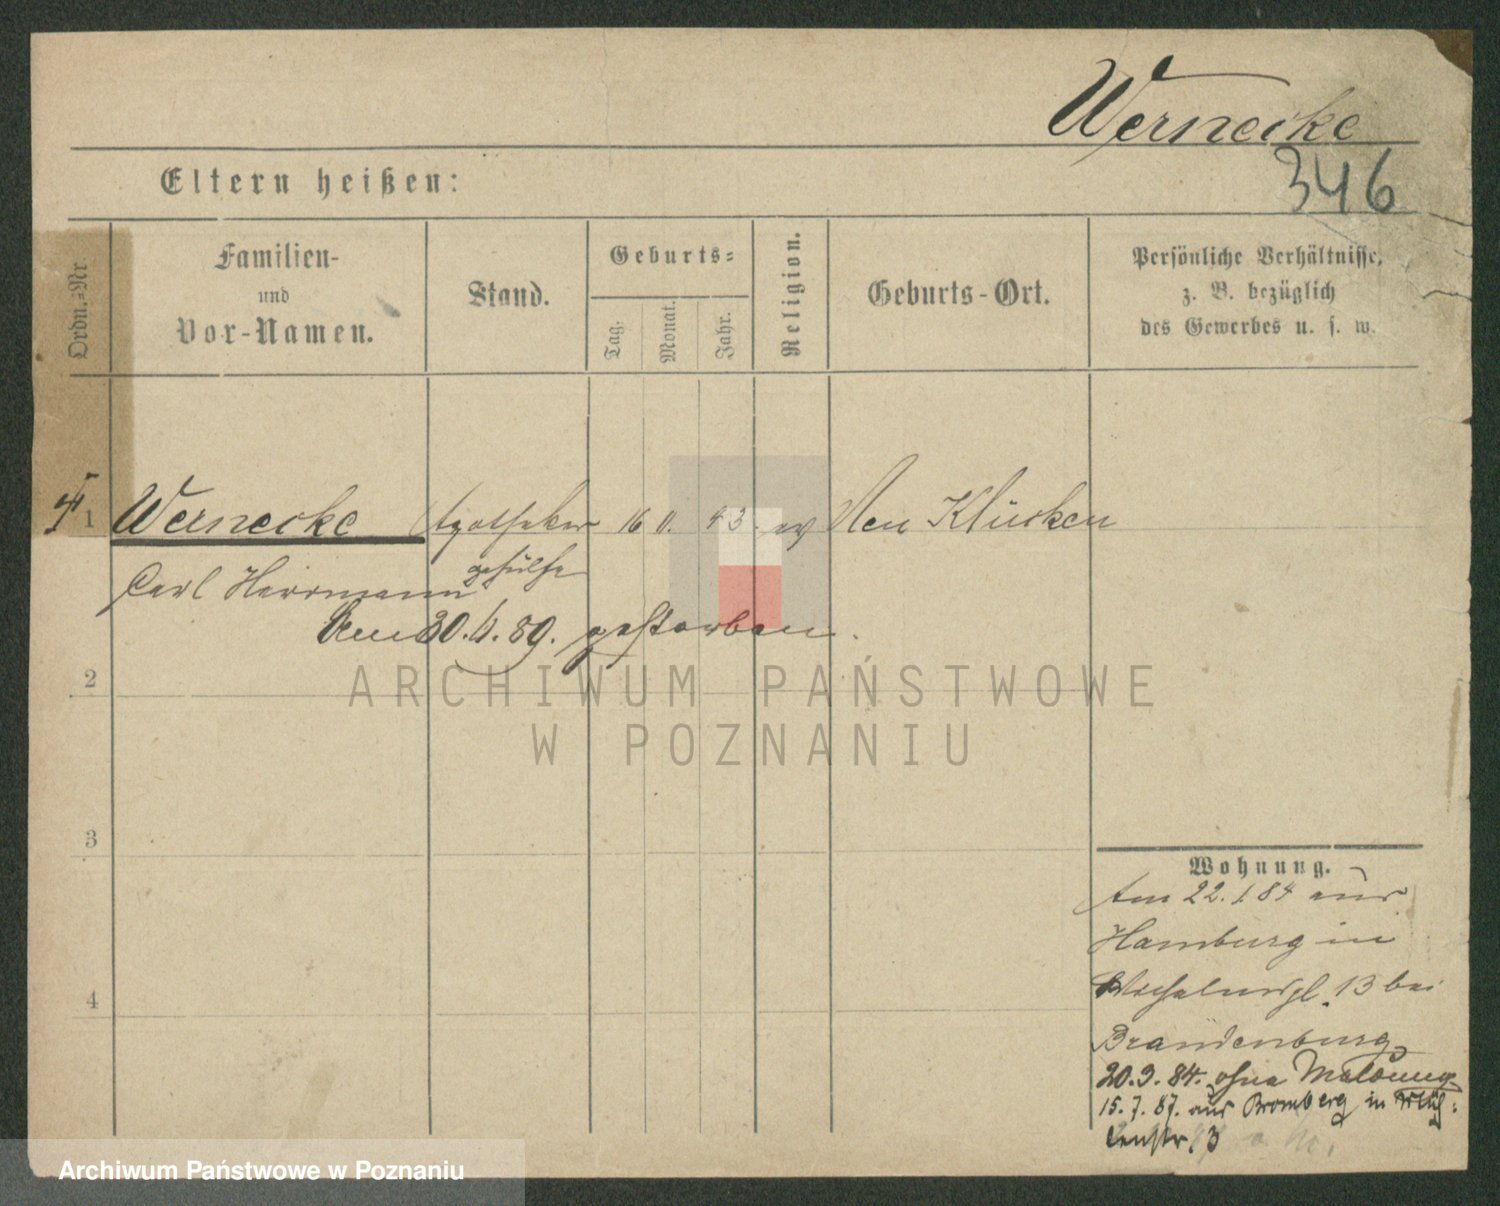 Wernecke
346
Eltern heißen:
Ordn.=Nr.
Familien-
und
Vor-Namen.
Stand.
Geburts=
Tag.
Monat.
Jahr.
Religion.
Geburts-Ort.
Persönliche Verhältnisse,
z. B. bezüglich
des Gewerbes u. s. w.
1 Wernecke Apotheker 16 11. 43. ev Neu Klücken
gehülfe
Carl Herrmann
30. 4. 89. gestorben.
2
ARCHIWUM PAŃSTWOWE
W POZNANIU
3
Wohnung.
Am 22. 1. 84 aus
Hamburg in
13 bei
4
Brandenburg
20. 9. 84. ohne Meldung
15. 7. 87. aus Bromberg in Müh:
lenstr. 3
Archiwum Państwowe w Poznaniu